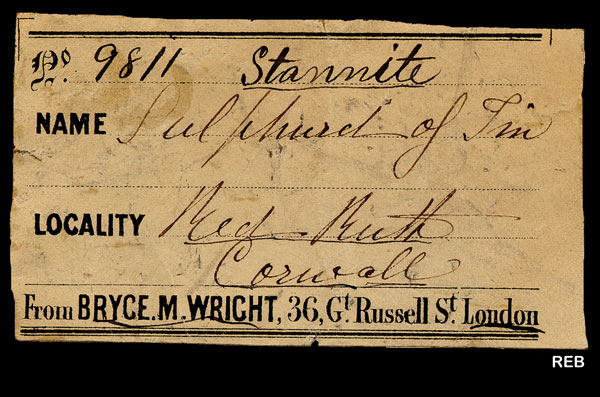 No. 9811 Stannite
NAME Sulphurd of Tin
LOCALITY Red-Ruth
Cornwall
From BRYCE.M.WRIGHT, 36, Gt. Russell St. London
REB